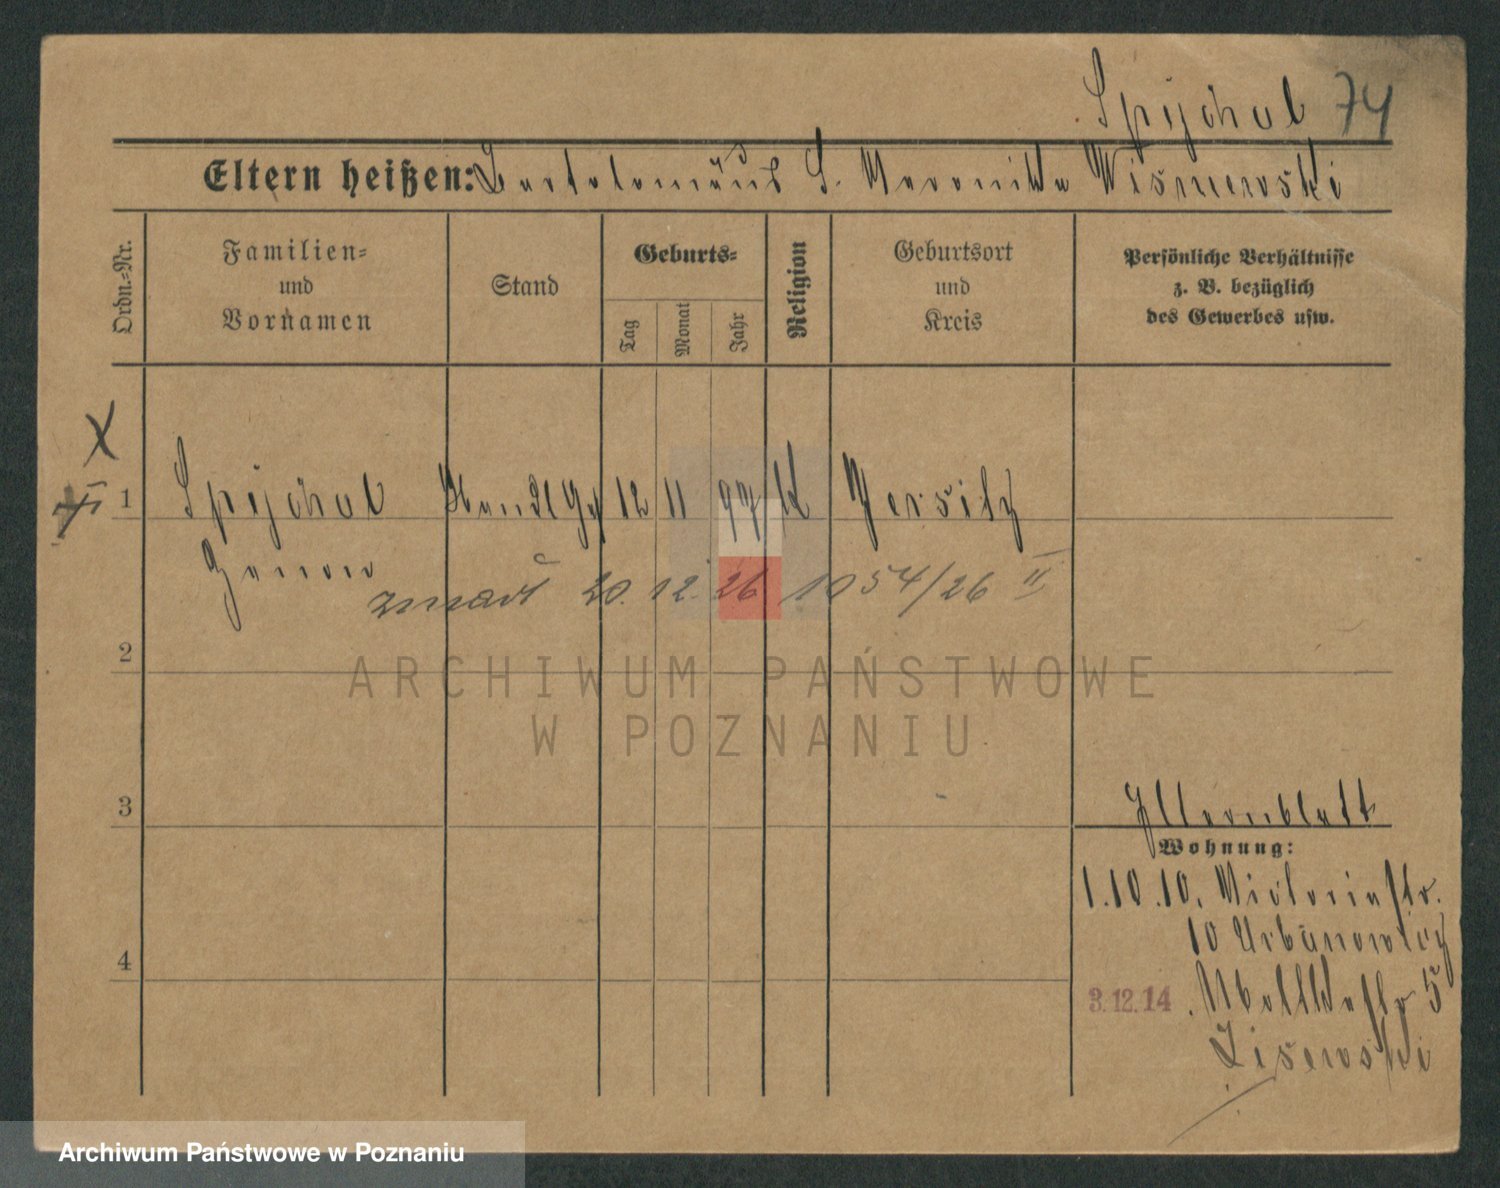 Spijchal 74
Eltern heißen: Bartolomäus S. Veronika Wisniewski
Ordn.-Nr.
Familien-
und
Vornamen
Stand
Geburts-
Tag
Monat
Jahr
Religion
Geburtsort
und
Kreis
Persönliche Verhältnisse
z. B. bezüglich
des Gewerbes usw.
X
II 1 Spijchal 12 11 97 K Jersitz
Zenon
zmarł 20. 12. 26 1054/26 II
2
ARCHIWUM PAŃSTWOWE
W POZNANIU
3
Elternblatt
Wohnung:
1.10.10. Victoriastr.
10 Urbanowicz
4
3.12.14 5
Lisewski
Archiwum Państwowe w Poznaniu